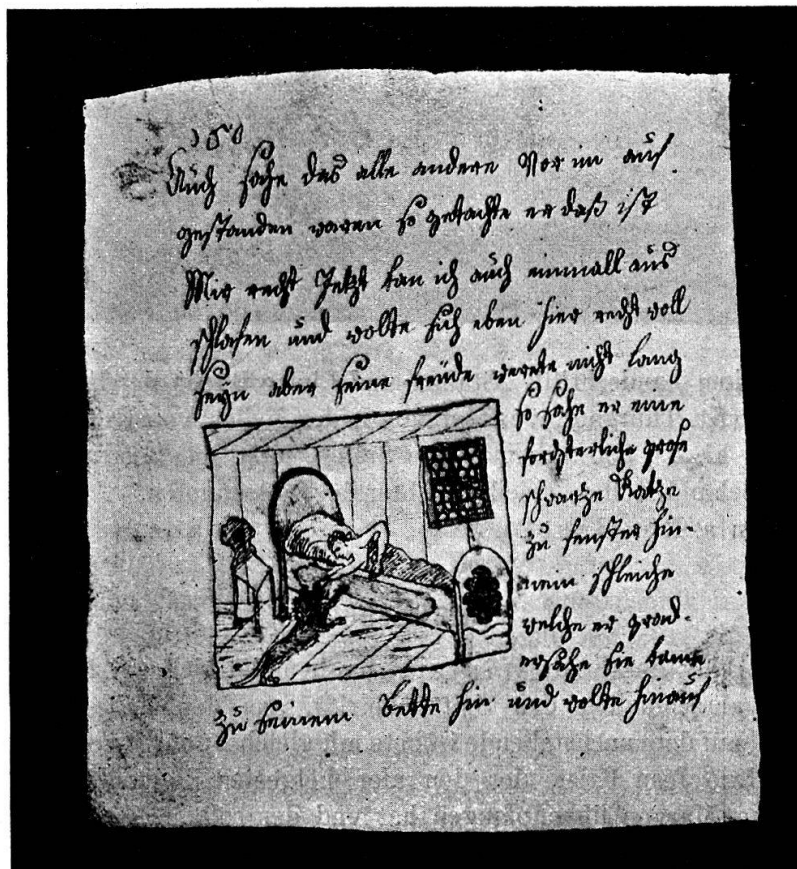 150
Auch sahe das alle andere Vor im auf
gestanden waren so gedachte er daß ist
Mir recht Jetzt kan ich auch einmall aus
schlafen und wolte sich eben hier recht woll
seyn aber seine freüde werete nicht lang
so sahe er eine
grose
schwarze Katze
zu fenster hin-
nein schleiche
welche er
ersahe sie kame
zu seinem Bette hin und wolte hinauf